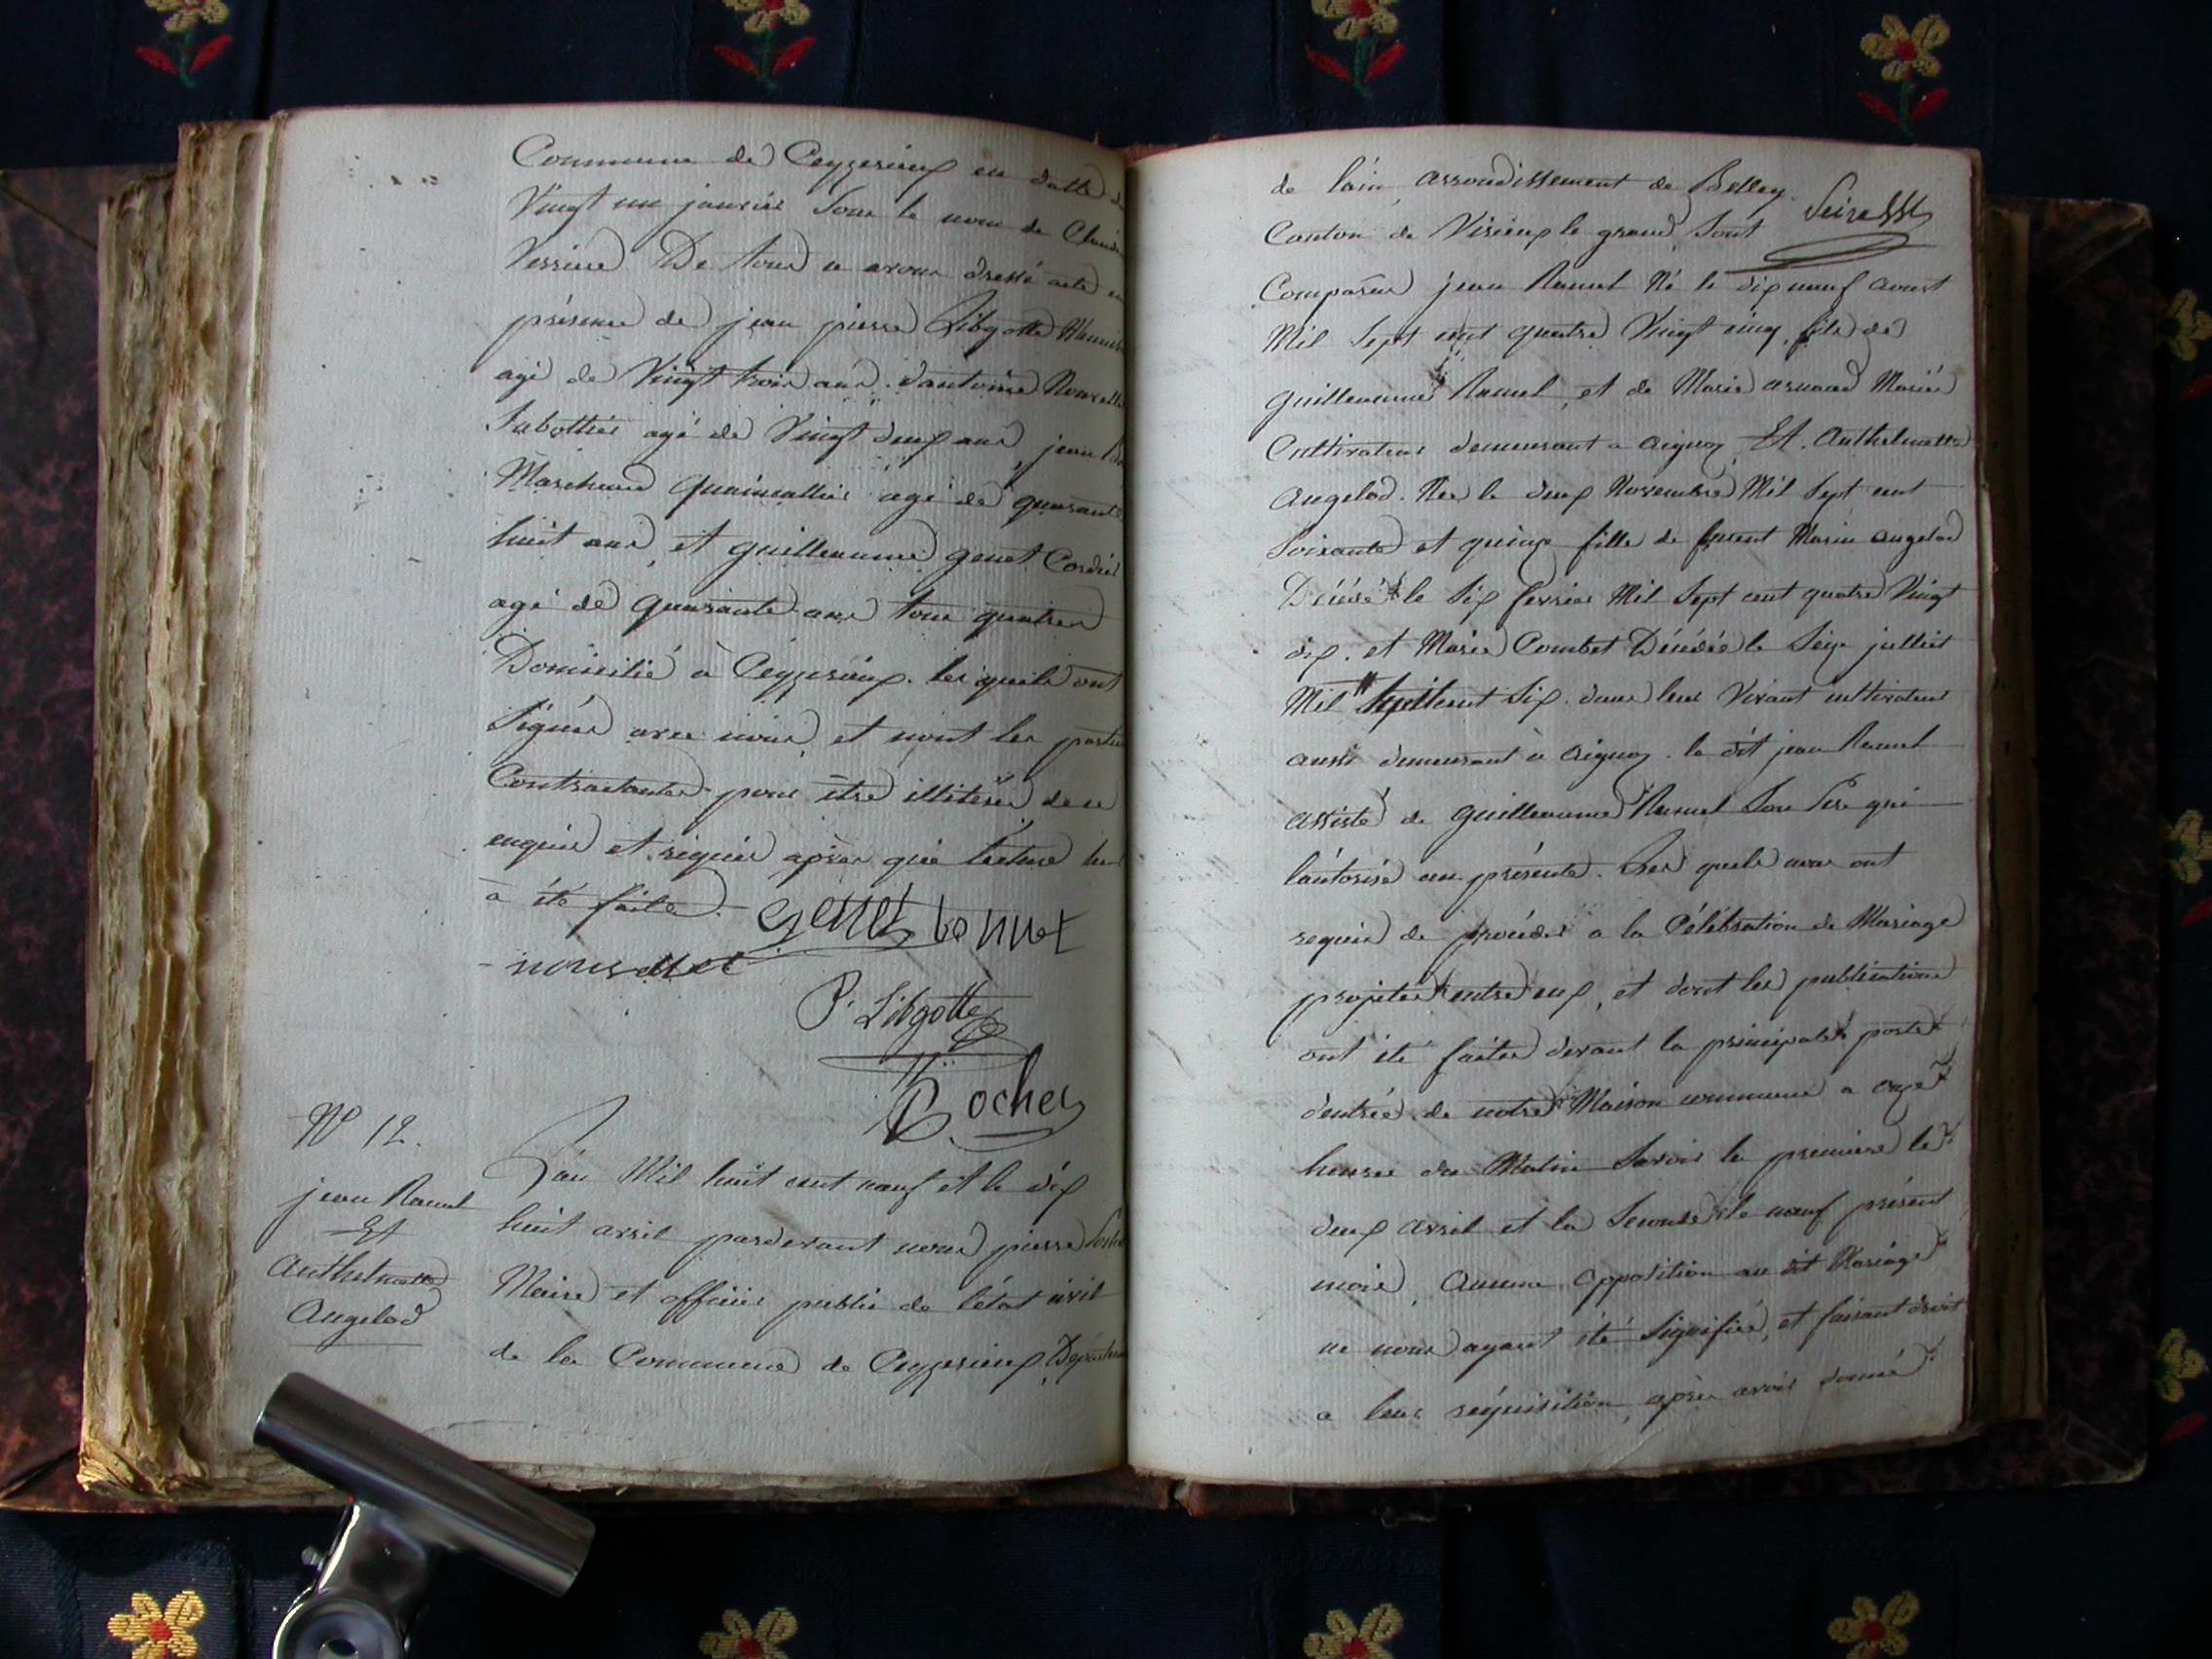 Commune de Ceyzerieux en datte du
Vingt un janvier Sous le nom de
De tout ce avons dressé acte en
présence de jean pierre Libgotte
agé de Vingt trois ans. d'antoine
Sabottier agé de Vingt deux ans, jean
Marchand Quaincallier agé de quarante
huit ans, et guillaume genet Cordier
agé de quarante ans tous quatres
Domicilié à Ceyzerieux. les quels ont
Signés avec nous, et nont les parties
Contractantes pour être illiterés de ce
enquis et requis après que lecture leur
à été faite. genet bonnet
P. Libgotte
Rochet
N° 12.
jean Ramel
Et
Anthelmette
Angelod
L'an Mil huit cent neuf et le dix
huit avril pardevant nous pierre
Maire et officier public de l'état civil
de la Commune de Ceyzerieux, Département
de lain arrondissement de Belley.
Canton de Virieux le grand, Sont
Comparus jean Ramel Né le dix neuf aoust
Mil Sept cent quatre Vingt cinq, fils de
guillaume Ramel, et de Marie arnaud Mariés
Cultivateurs demeurant a aignoz Et. Anthelmette
angelod. Née le deux Novembre Mil Sept cent
Soixante et quinze fille de furent Marin angelod
Décédé le Six fevrier Mil Sept cent quatre Vingt
dix. et Marie Combet Décédée le Seize julliet
Mil huit cent Six. dans leur Vivant cultivateurs
aussi demeurant à aignoz. le dit jean Ramel
assisté de guillaume Ramel Son Pere qui
lautorisé au présente. Les quels nous ont
requis de procéder a la Célébration de Mariage
projettés entre eux, et dont les publications
ont été faites devant la principale porte
d'entrée de notre Maison commune a onze
heures du Matin Savoir la premiere le
deux avril et la Seconde le neuf présent
mois, Aucune opposition au dit Mariage
ne nous ayant été Signifiée, et faisant droit
a leur réquisition, après avoir donné